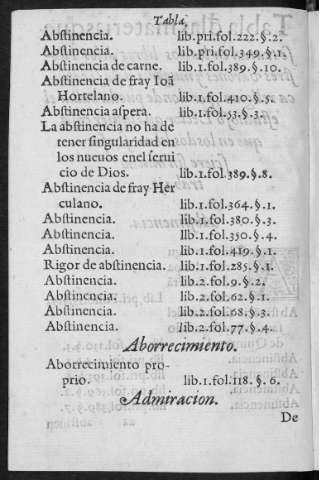 Tabla
Abstinencia. lib.pri.fol.222.§.2.
Abstinencia. lib.pri.fol.349.§.1.
Abstinencia de carne. lib.1.fol.389.§.10.
Abstinencia de fray Ioã
Hortelano. lib.1.fol.410.§.5.
Abstinencia aspera. lib.1.fol.53.§.3.
La abstinencia no ha de
tener singularidad en
los nueuos enel serui
cio de Dios. lib.1.fol.389.§.8.
Abstinencia de fray Her
culano. lib.1.fol.364.§.1.
Abstinencia. lib.1.fol.380.§.3.
Abstinencia. lib.1.fol.350.§.4.
Abstinencia. lib.1.fol.419.§.1.
Rigor de abstinencia. lib.1.fol.285.§.1.
Abstinencia. lib.2.fol.9.§.2.
Abstinencia. lib.2.fol.62.§.1.
Abstinencia. lib.2.fol.68.§.3.
Abstinencia. lib.2.fol.77.§.4.
Aborrecimiento.
Aborrecimiento pro-
prio. lib.1.fol.118.§.6.
Admiracion.
De